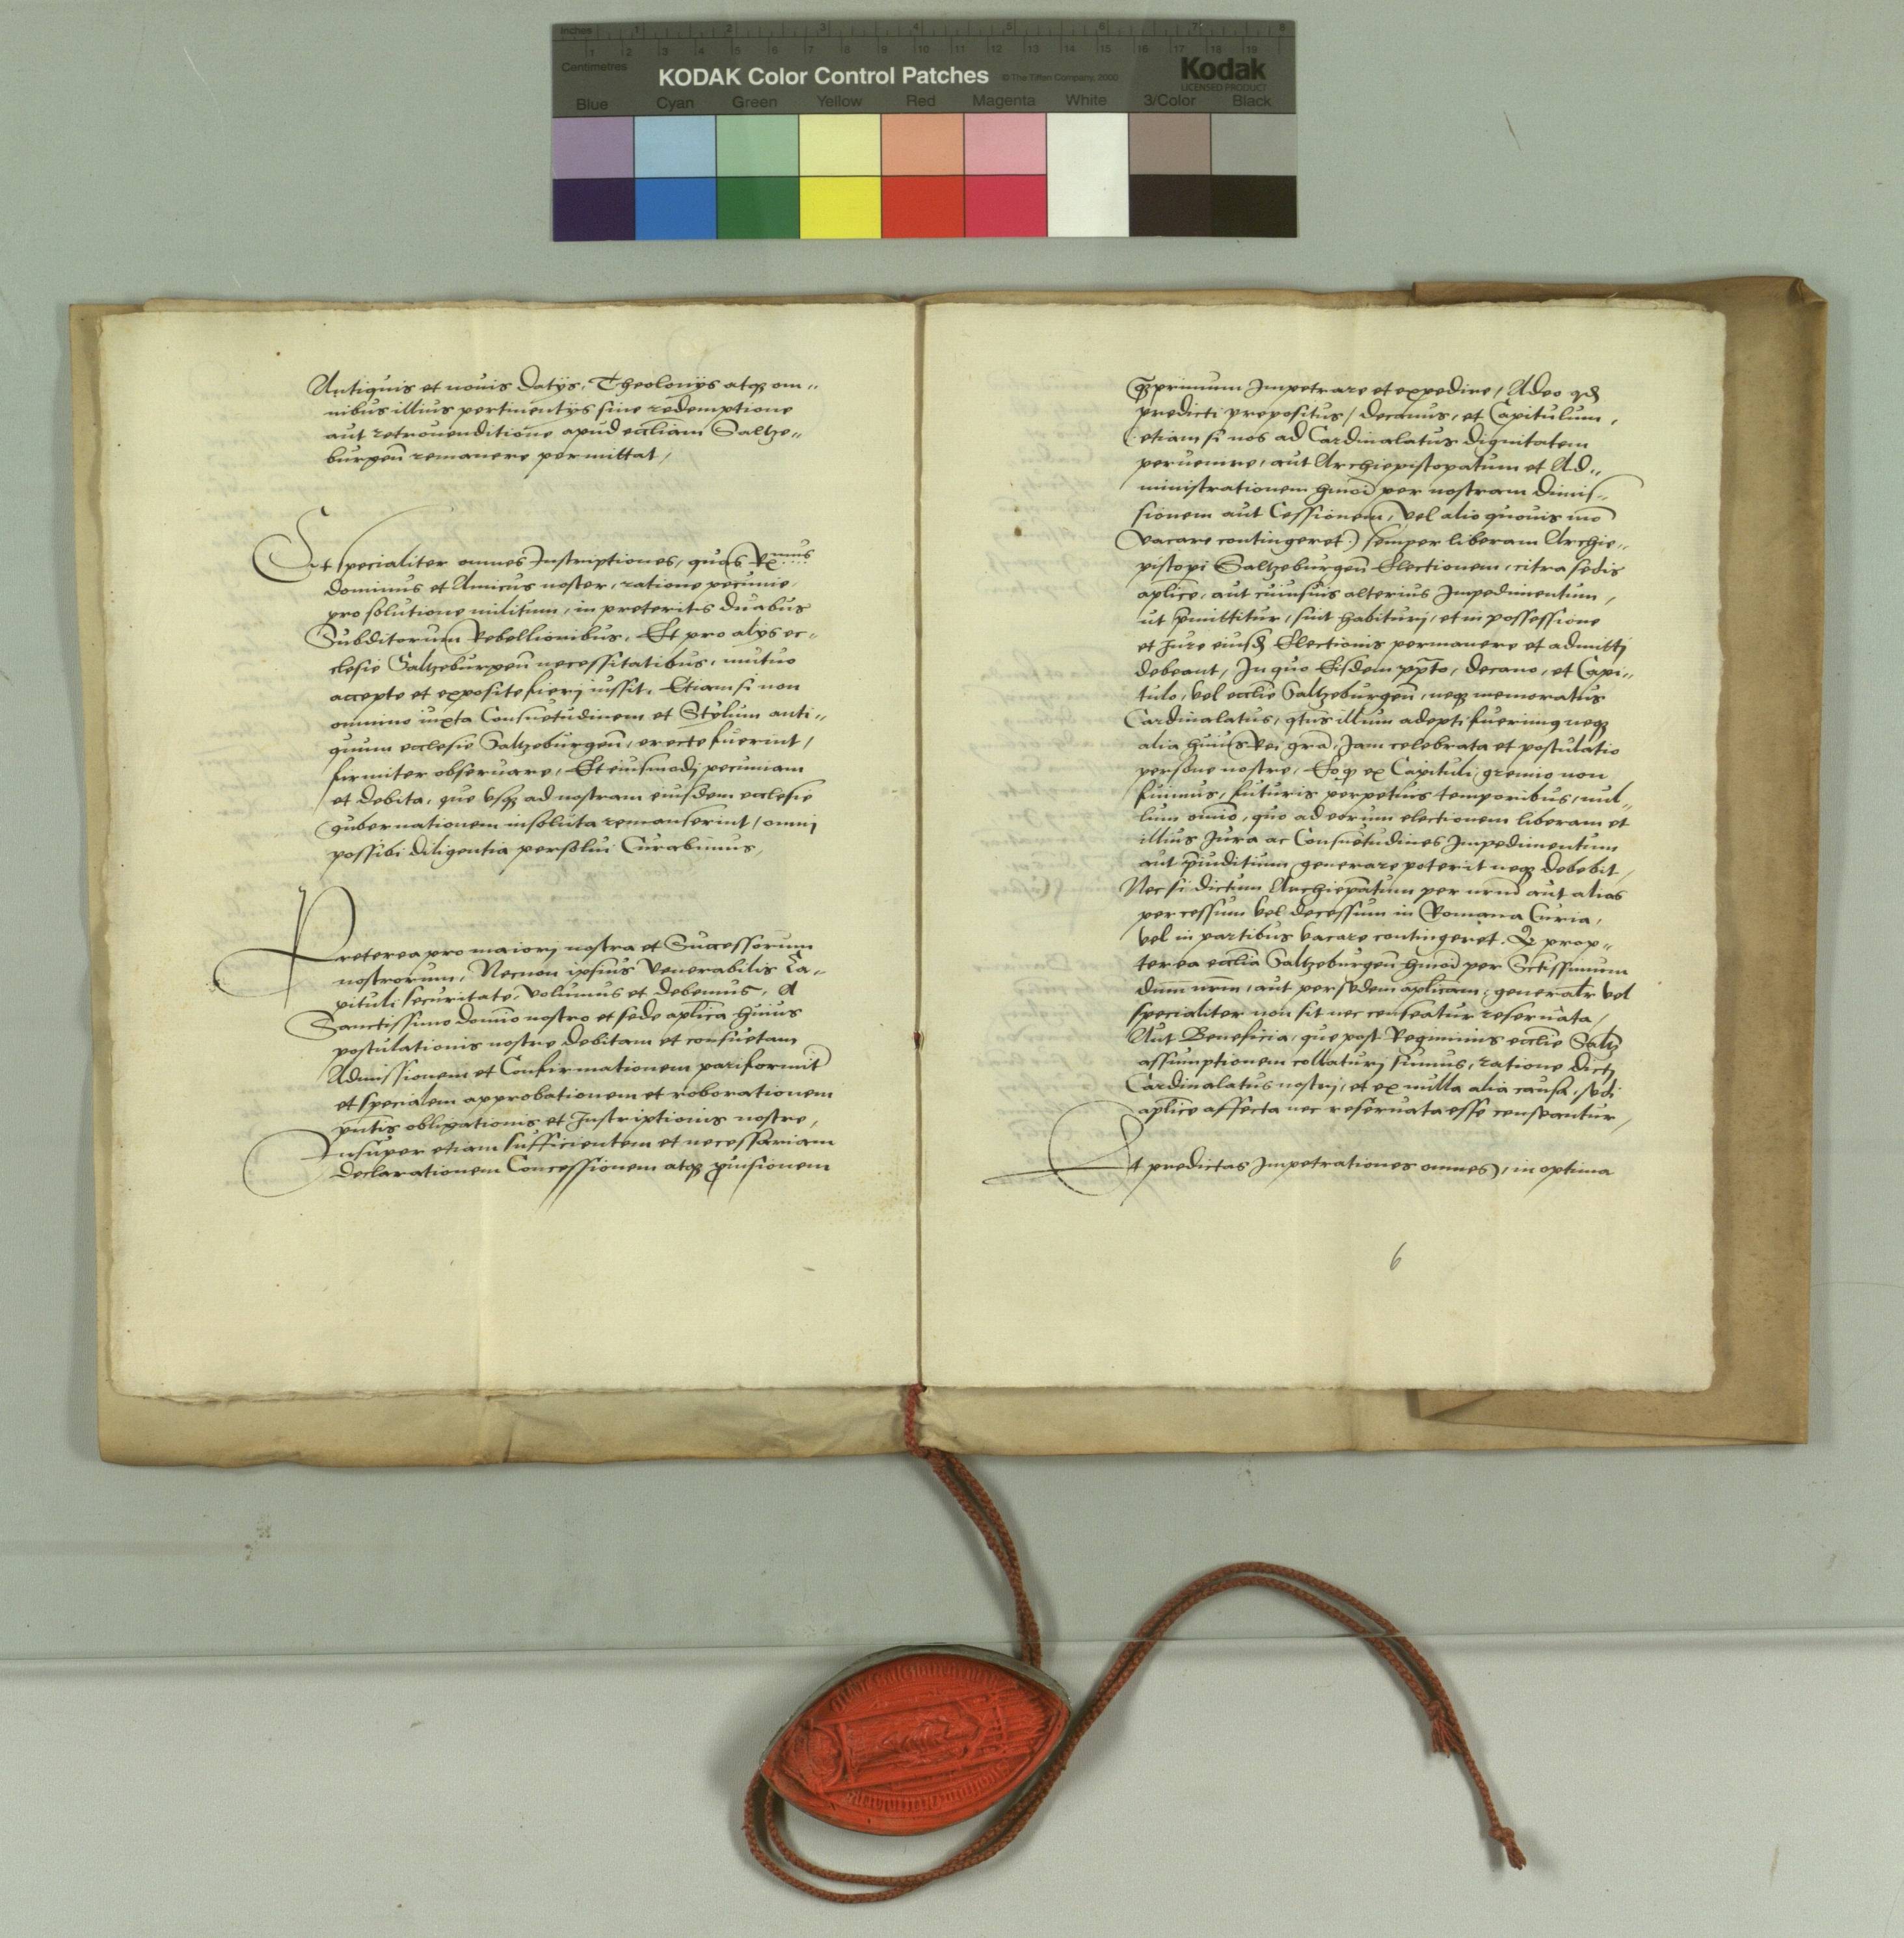 Inches 1 2 3 4 5 6 7 8
1 2 3 4 5 6 7 8 9 10 11 12 13 14 15 16 17 18 19
Centimetres
KODAK Color Control Patches © The Tiffen Company, 2000 Kodak
LICENSED PRODUCT
Blue Cyan Green Yellow Red Magenta White 3/Color Black
Antiquis et nouis datijs, Theolonijs atq3 om„
nibus illius pertinentijs sine redemptione
aut retrouenditione apud eccliam Saltze„
burgen remanere permittat /
Et specialiter omnes Inscriptiones, quas Rmus
dominus et Amicus noster, ratione pecunie
pro solutione militum, in preteritis duabus
Subditorum Rebellionibus, Et pro alijs ec„
clesie Saltzeburgen necessitatibus, mutuo
accepte et exposite fierj iussit, Etiam si non
omnino iuxta Consuetudinem et Stylum anti„
quum ecclesie Saltzeburgen, erecte fuerint /
firmiter obseruare, Et eiusmodj pecuniam
et debita, que vsq3 ad nostram eiusdem ecclesie
gubernationem insoluta remanserint / omnj
possibi diligentia persolui Curabimus,
Preterea pro maiorj nostra et Successorum
nostrorum, Necnon ipsius Venerabilis Ca„
pituli securitate, volumus et debemus, A
Sanctissimo domino nostro et sede aplica huius
postulationis nostre debitam et consuetam
Admissionem et Confirmationem pariformit
et specialem approbationem et roborationem
pntis obligationis et Inscriptionis nostre,
Insuper etiam sufficientem et necessariam
declarationem Concessionem atq3 prouisionem
Qprimum Impetrare et expedire / Adeo qd
predicti prepositus / decanus, et Capitulum,
(etiam si nos ad Cardinalatus dignitatem
peruenire, aut Archiepiscopatum et Ad„
ministrationem hmoi per nostram dimis„
sionem aut Cessionem, vel alio quouis mo
vacare contingeret) semper liberam Archie„
piscopi Saltzeburgen Electionem, citra sedis
aplice, aut cuiusuis alterius Impedimentum,
ut pmittitur, sint habiturj, et in possessione
et Jure eiusd Electionis permanere et admittj
debeant, In quo Eisdem ppto, decano, et Capi„
tulo, vel ecclie Saltzeburgen, neq3 memoratus
Cardinalatus, qtus illum adepti fuerimus neq3
alia huius Rei gra, Jam celebrata et postulatio
persone nostre, Eo q ex Capituli gremio non
fuimus, futuris perpetuis temporibus, nul„
lum omnio, quo ad eorum electionem liberam et
illius Jura ac Consuetudines Impedimentum
aut piuditium generare poterit neq3 debebit,
Nec si dictum Archiepatum per nrm aut alias
per cessum vel decessum in Romana Curia,
vel in partibus vacare contingeret. Q prop„
terea ecclia Saltzeburgen hmoi per Sctissimum
dnm nrm, aut per sedem aplicam, generalr vel
specialiter non sit nec censeatur reseruata /
Aut Beneficia, que post Regiminis ecclie Saltz
assumptionem collaturj sumus, ratione dictj
Cardinalatus nostrj, et ex nulla alia causa, sedi
aplice affecta nec reseruata esse censeantur,
Et predictas Impetrationes omnes, in optima
6